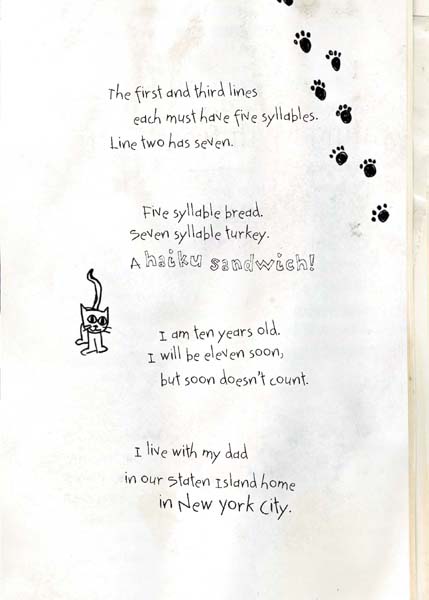 The first and third lines
each must have five syllables.
Line two has seven.
Five syllable bread.
Seven syllable turkey.
A haiku sandwich!
I am ten years old.
I will be eleven soon,
but soon doesn't count.
I live with my dad
in our Staten Island home
in New York City.